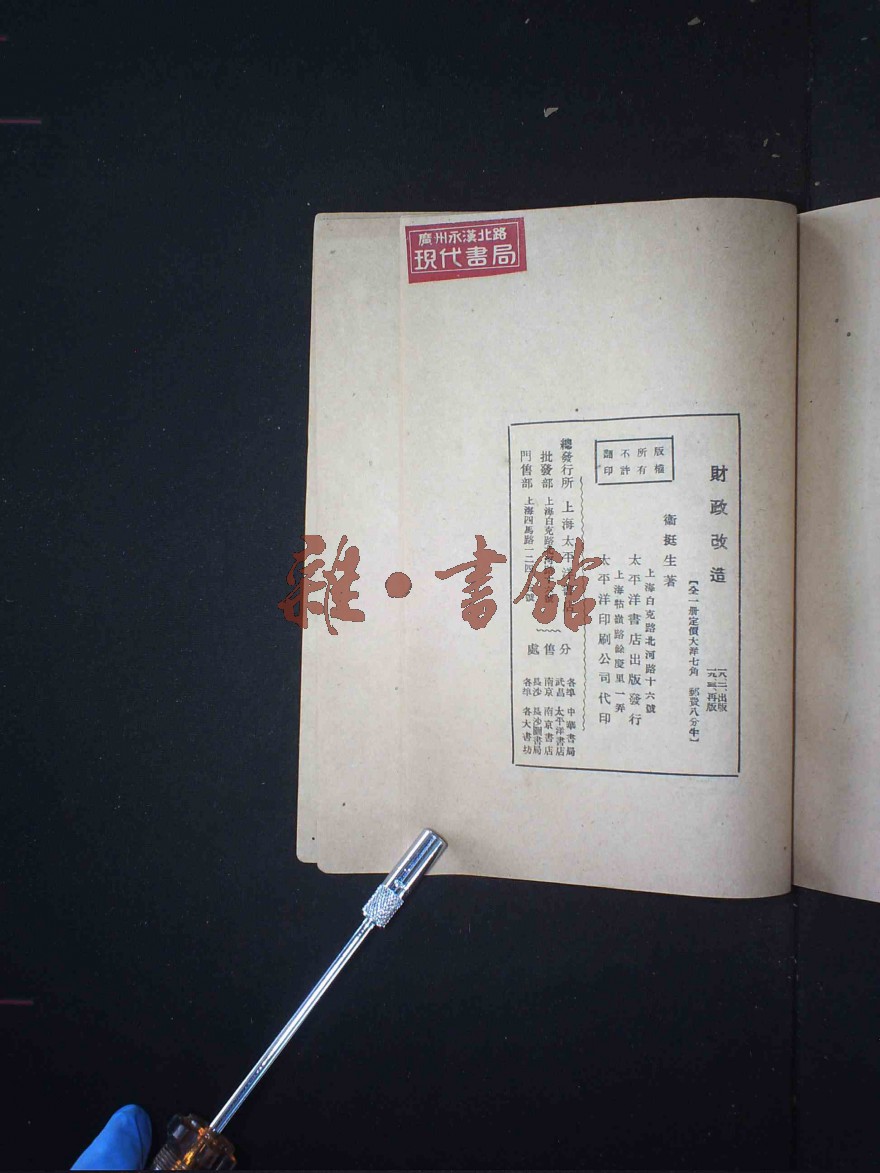 廣州永漢北路
現代書局
財政改造
【全一册定價大洋七角 郵費八分半】
衞挺生著
上海白克路北河路十六號
太平洋書店出版發行
上海牯嶺路餘慶里一弄
太平洋印刷公司代印
版權
所有
不許
翻印
總發行所 上海太平洋書店
批發部 上海白克路
門售部 上海四馬路一二四號
分售處
各埠 中華書局
武昌 太平洋書店
南京 南京書店
長沙 長沙圖書局
各埠 各大書坊
雜·書館